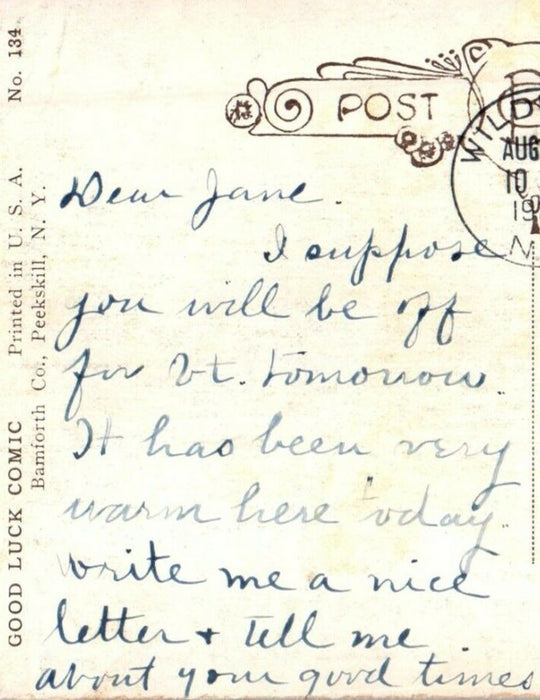 GOOD LUCK COMIC Printed in U. S. A. No. 134
Bamforth Co., Peekskill, N. Y.
POST
WILD
AUG
10
19
N
Dear Jane.
I suppose
you will be off
for Vt. tomorrow.
It has been very
warm here today.
write me a nice
letter + tell me
about your good times